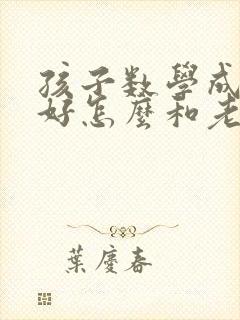 孩子数學成
好怎麼和老
葉慶春